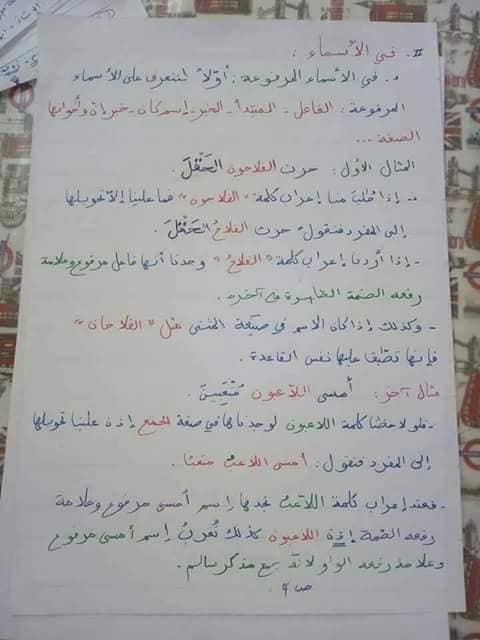 II. في الأسماء :
1. في الأسماء المرفوعة : أولاً لنتعرف على الأسماء
المرفوعة : الفاعل - المبتدأ - الخبر - إسم كان - خبر إن وأخواتها
الصفة ...
المثال الأول : حرث الفلاحون الحَقْلَ .
- إذا طُلبَ منا إعراب كلمة "الفلاحون" فما علينا إلا تحويلها
إلى المفرد فنقول حرث الفلاحُ الحَقْلَ .
- إذا أردنا إعراب كلمة "الفلاحُ" وجدنا أنها فاعل مرفوع وعلامة
رفعه الضمة الظاهرة في آخره .
- وكذلك إذا كان الاسم في صيغة المثنى مثل "الفلاحان"
فإنها تطبّق عليها نفس القاعدة .
مثال آخر : أمسى اللاعبون مُتْعَبِينَ .
- فلو لاحظنا كلمة اللاعبون لوجدناها في صفة الجمع إذن علينا تحويلها
إلى المفرد فنقول : أمسى اللاعبُ متعبًا .
- فعند إعراب كلمة اللاعبُ نجدها إسم أمسى مرفوع وعلامة
رفعه الضمة إذن اللاعبون كذلك نُعربُ إسم أمسى مرفوع
وعلامة رفعه الواو لأنه جمع مذكر سالم .